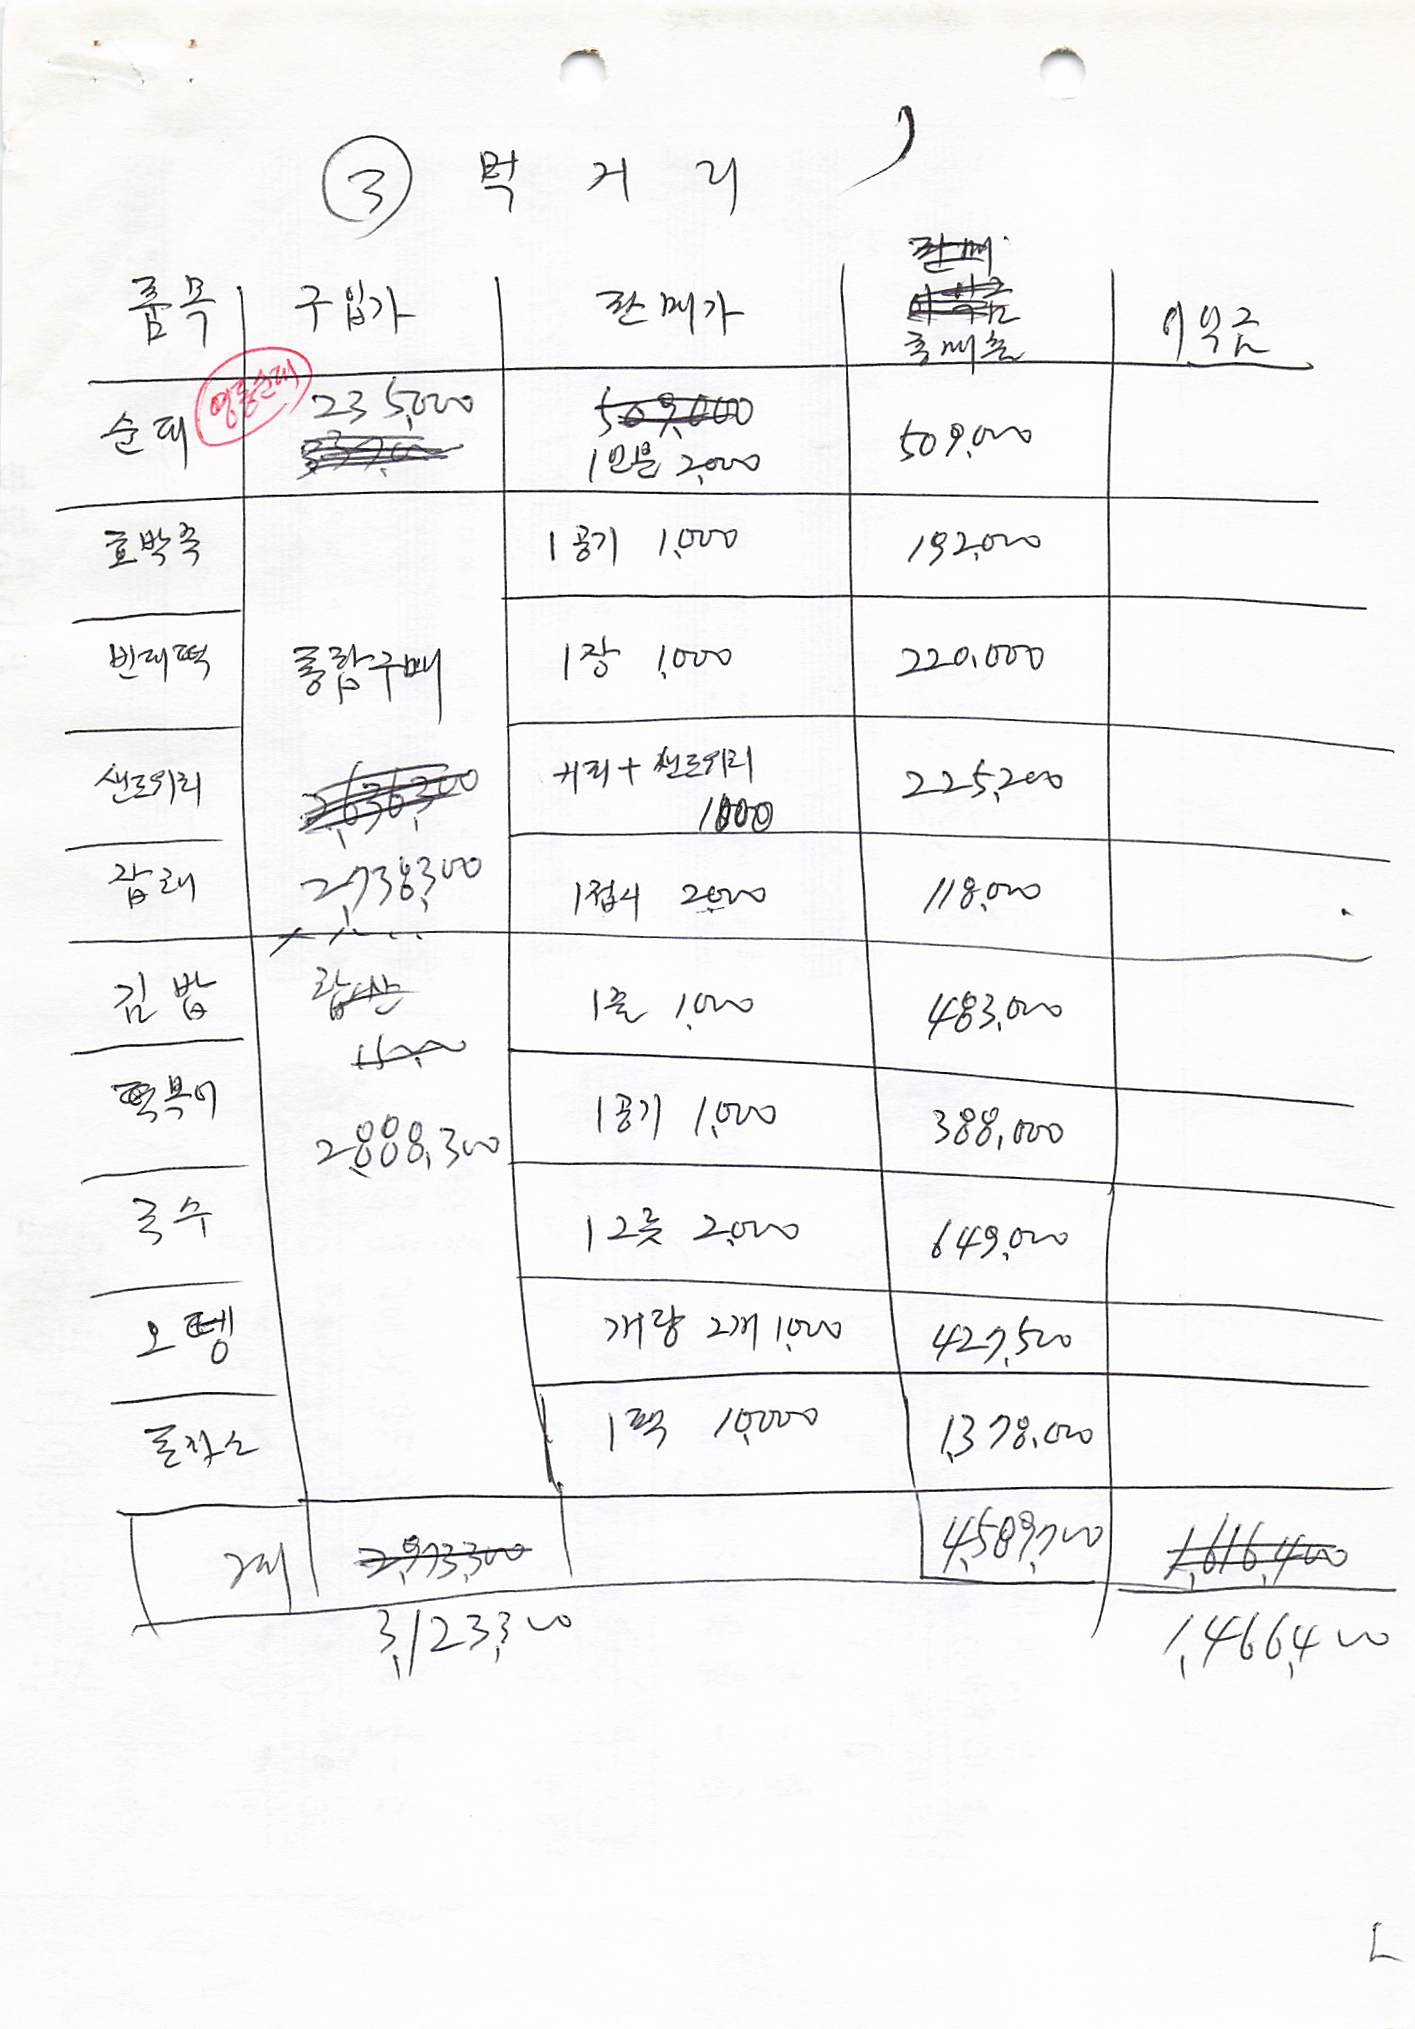 ③ 먹거리
품목 구입가 판매가 총매출 이익금
순대 영동순대 235,000 509,000 1인분 2,000 509,000
호박죽 1공기 1,000 192,000
빈대떡 통합구매 1장 1,000 220,000
샌드위치 2,636,300 커피+샌드위치 1000 225,200
잡채 2,738,300 1접시 2,000 118,000
김밥 1줄 1,000 483,000
떡볶이 2,888,300 1공기 1,000 388,000
국수 1그릇 2,000 649,000
오뎅 개량 2개 1,000 427,500
1팩 10,000 1,378,000
계 2,973,300 4,589,700 1,616,400
3,123,300 1,466,400